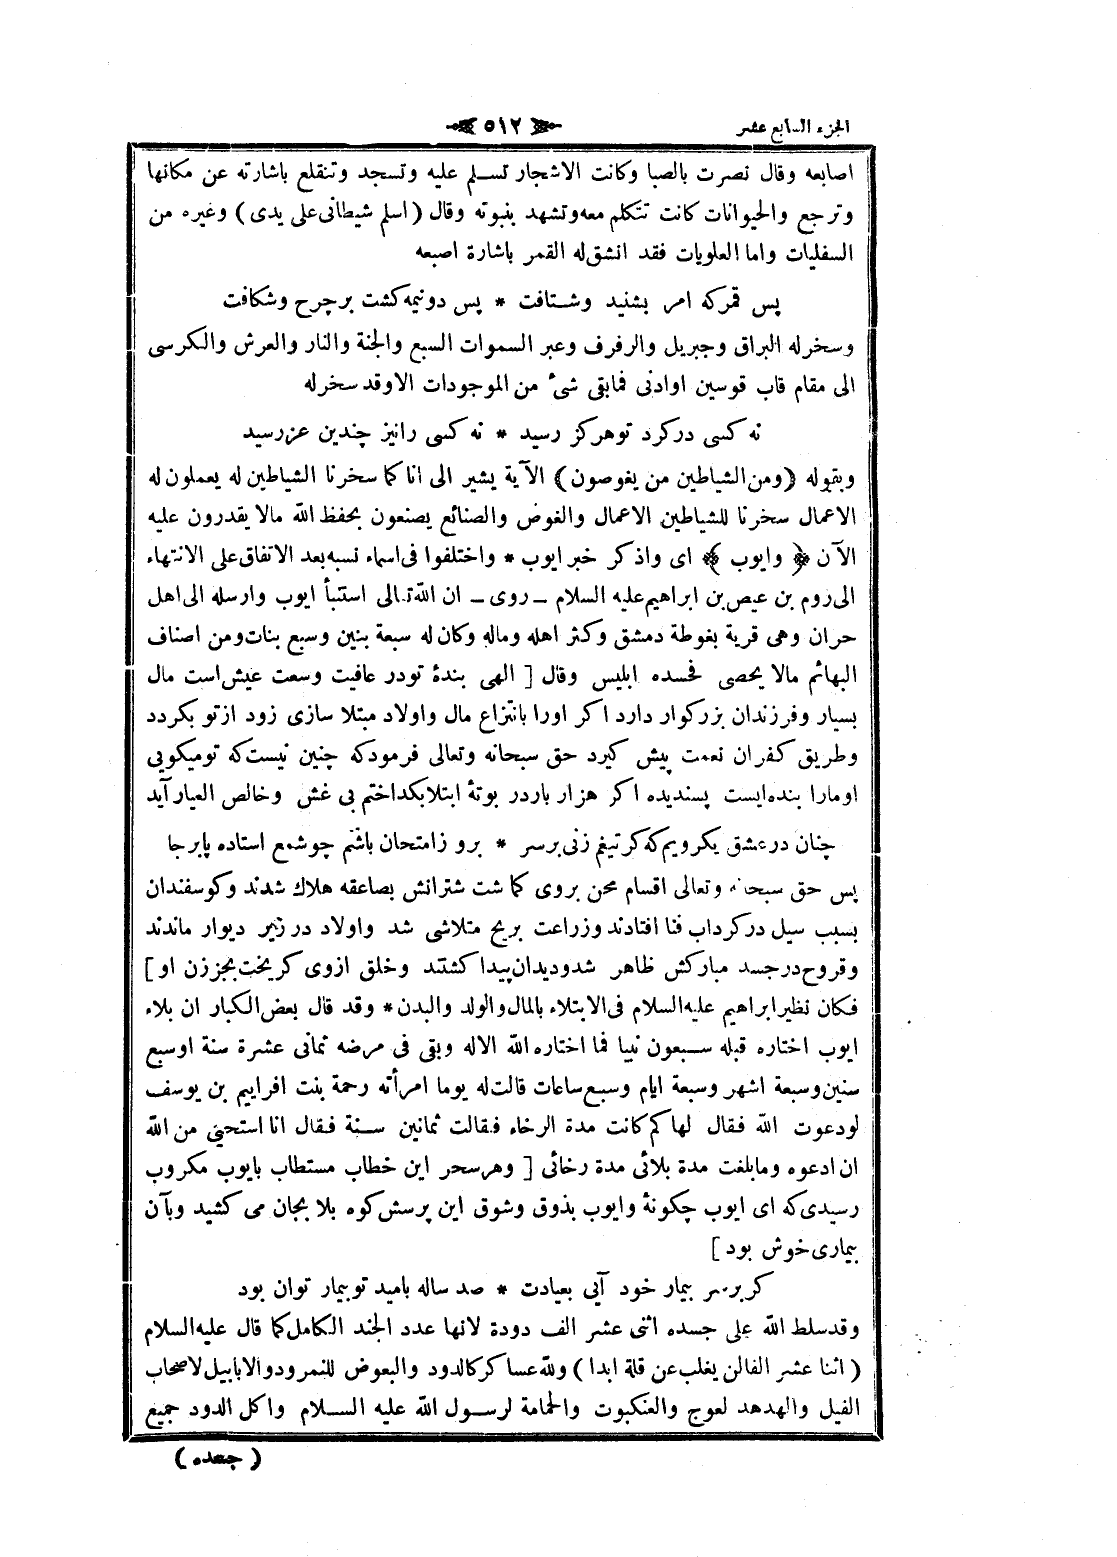 الجزء السابع عشر ﴿ ٥١٢ ﴾
اصابعه وقال نصرت بالصبا وكانت الاشجار تسلم عليه وتسجد وتنقلع باشارته عن مكانها
وترجع والحيوانات كانت تتكلم معه وتشهد بنبوته وقال ( اسلم شيطانى على يدى ) وغيره من
السفليات واما العلويات فقد انشق له القمر باشارة اصبعه
پس قمركه امر بشنيد وشتافت * پس دونيمه كشت بر چرخ وشكافت
وسخر له البراق وجبريل والرفرف وعبر السموات السبع والجنة والنار والعرش والكرسى
الى مقام قاب قوسين اوادنى فمابقى شئ من الموجودات الاوقد سخر له
نه كسى در كرد توهركز رسيد * نه كسى رانيز چندين عز رسيد
وبقوله ( ومن الشياطين من يغوصون ) الآية يشير الى انا كما سخرنا الشياطين له يعملون له
الاعمال سخرنا للشياطين الاعمال والغوض والصنائع يصنعون بحفظ الله مالا يقدرون عليه
الآن ﴿ وايوب ﴾ اى واذكر خبر ايوب * واختلفوا فى اسماء نسبه بعد الاتفاق على الانتهاء
الى روم بن عيص بن ابراهيم عليه السلام ـ روى ـ ان الله تعالى استنبأ ايوب وارسله الى اهل
حران وهى قرية بغوطة دمشق وكثر اهله وماله وكان له سبعة بنين وسبع بنات ومن اصناف
البهائم مالا يحصى فحسده ابليس وقال [ الهى بندۀ تودر عافيت وسعت عيش است مال
بسيار وفرزندان بزركوار دارد اكر اورا بانتزاع مال واولاد مبتلا سازى زود ازتو بكردد
وطريق كفران نعمت پيش كيرد حق سبحانه وتعالى فرمودكه چنين نيست كه توميكويى
اومارا بنده ايست پسنديده اكر هزار باردر بوتۀ ابتلا بكداختم بى غش وخالص العيار آيد
چنان در عشق يكرويم كه كر تيغم زنى برسر * برو زامتحان باشم چو شمع استاده پابرجا
پس حق سبحانه وتعالى اقسام محن بروى كماشت شترانش بصاعقه هلاك شدند وكوسفندان
بسبب سيل در كرداب فنا افتادند وزراعت بريح متلاشى شد واولاد در زير ديوار ماندند
وقروح در جسد مباركش ظاهر شد وديدان پيدا كشتند وخلق ازوى كريخت بجز زن او ]
فكان نظير ابراهيم عليه السلام فى الابتلاء بالمال والولد والبدن * وقد قال بعض الكبار ان بلاء
ايوب اختاره قبله سبعون نبيا فما اختاره الله الاله وبقى فى مرضه ثمانى عشرة سنة اوسبع
سنين وسبعة اشهر وسبعة ايام وسبع ساعات قالت له يوما امرأته رحمة بنت افراييم بن يوسف
لودعوت الله فقال لها كم كانت مدة الرخاء فقالت ثمانين سنة فقال انا استحيى من الله
ان ادعوه ومابلغت مدة بلائى مدة رخائى [ وهر سحر اين خطاب مستطاب بايوب مكروب
رسيدى كه اى ايوب چكونۀ وايوب بذوق وشوق اين پرسش كوه بلا بجان مى كشيد وبآن
بيمارى خوش بود ]
كر بر سر بيمار خود آيى بعيادت * صد ساله باميد تو بيمار توان بود
وقد سلط الله على جسده اثنى عشر الف دودة لانها عدد الجند الكامل كما قال عليه السلام
( اثنا عشر الفا لن يغلب عن قلة ابدا ) ولله عساكر كالدود والبعوض للنمرود والابابيل لاصحاب
الفيل والهدهد لعوج والعنكبوت والحمامة لرسول الله عليه السلام واكل الدود جميع
( جسده )